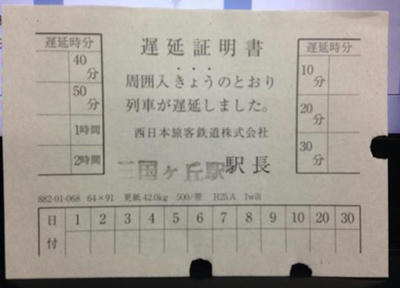 遅延証明書
遅延時分
40分
50分
1時間
2時間
周囲入きょうのとおり
列車が遅延しました。
西日本旅客鉄道株式会社
三国ヶ丘駅 駅長
遅延時分
10分
20分
30分
882-01-068 64×91 更紙42.0kg 500/帯 H25.A
日付 1 2 3 4 5 6 7 8 9 10 20 30